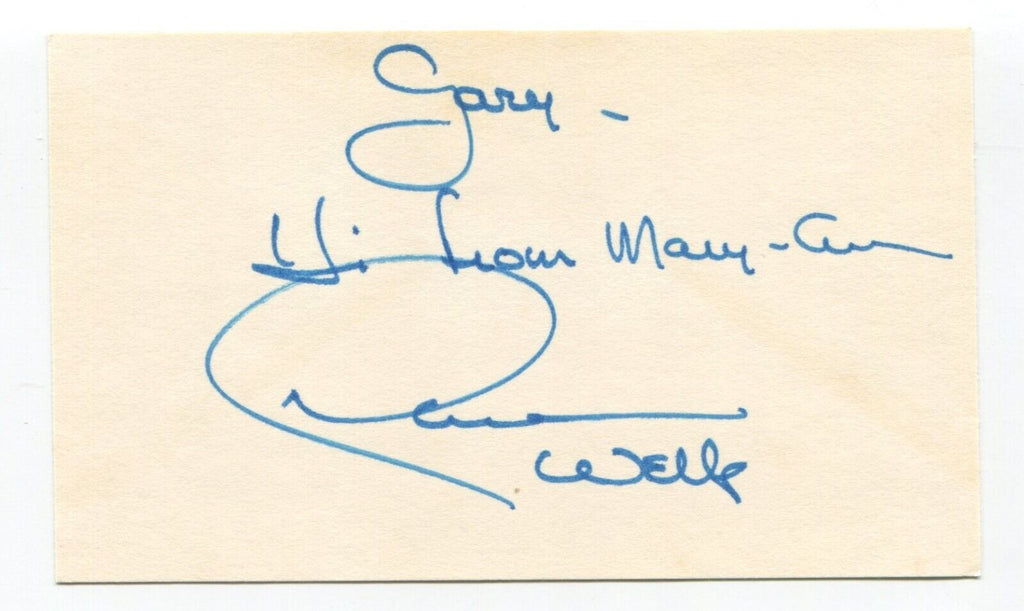 Gary -
Hi from Mary-Ann
Dawn
Wells